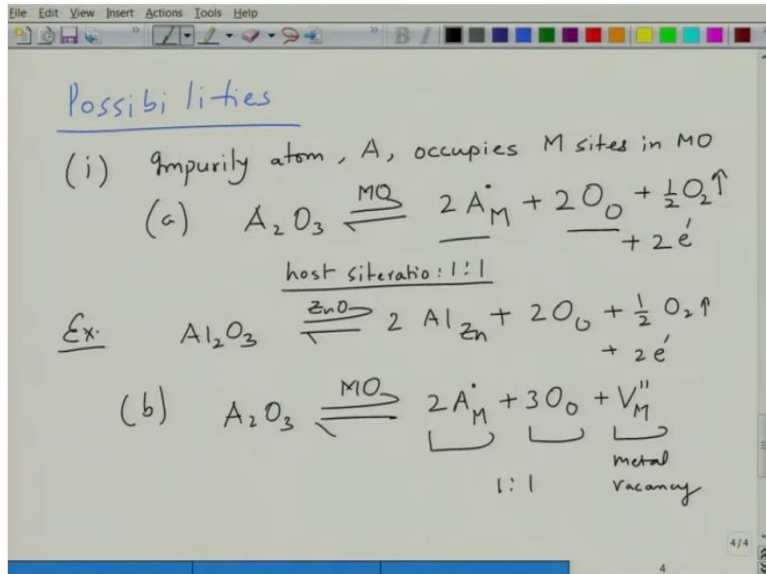 File Edit View Insert Actions Tools Help
B I
Possibilities
(i) Impurily atom, A, occupies M sites in MO
(a) A₂O₃ ⇌ MO 2A˙M + 2OO + ½O₂↑
+ 2e′
host site ratio: 1:1
Ex. Al₂O₃ ⇌ ZnO 2 AlZn + 2OO + ½ O₂↑
+ 2e′
(b) A₂O₃ ⇌ MO 2A˙M + 3OO + V″M
1:1 metal
vacancy
4/4
4